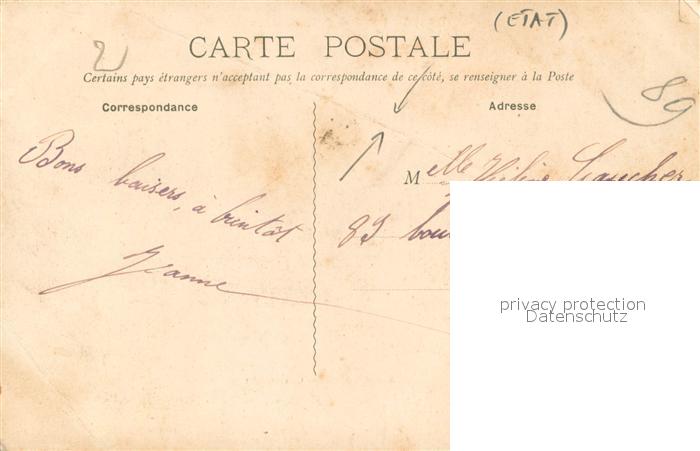 2 (ETAT)
CARTE POSTALE
Certains pays étrangers n'acceptant pas la correspondance de ce côté, se renseigner à la Poste
89
Correspondance
Adresse
Bons baisers, à bientôt
Jeanne
Melle Gaucher
89
privacy protection
Datenschutz